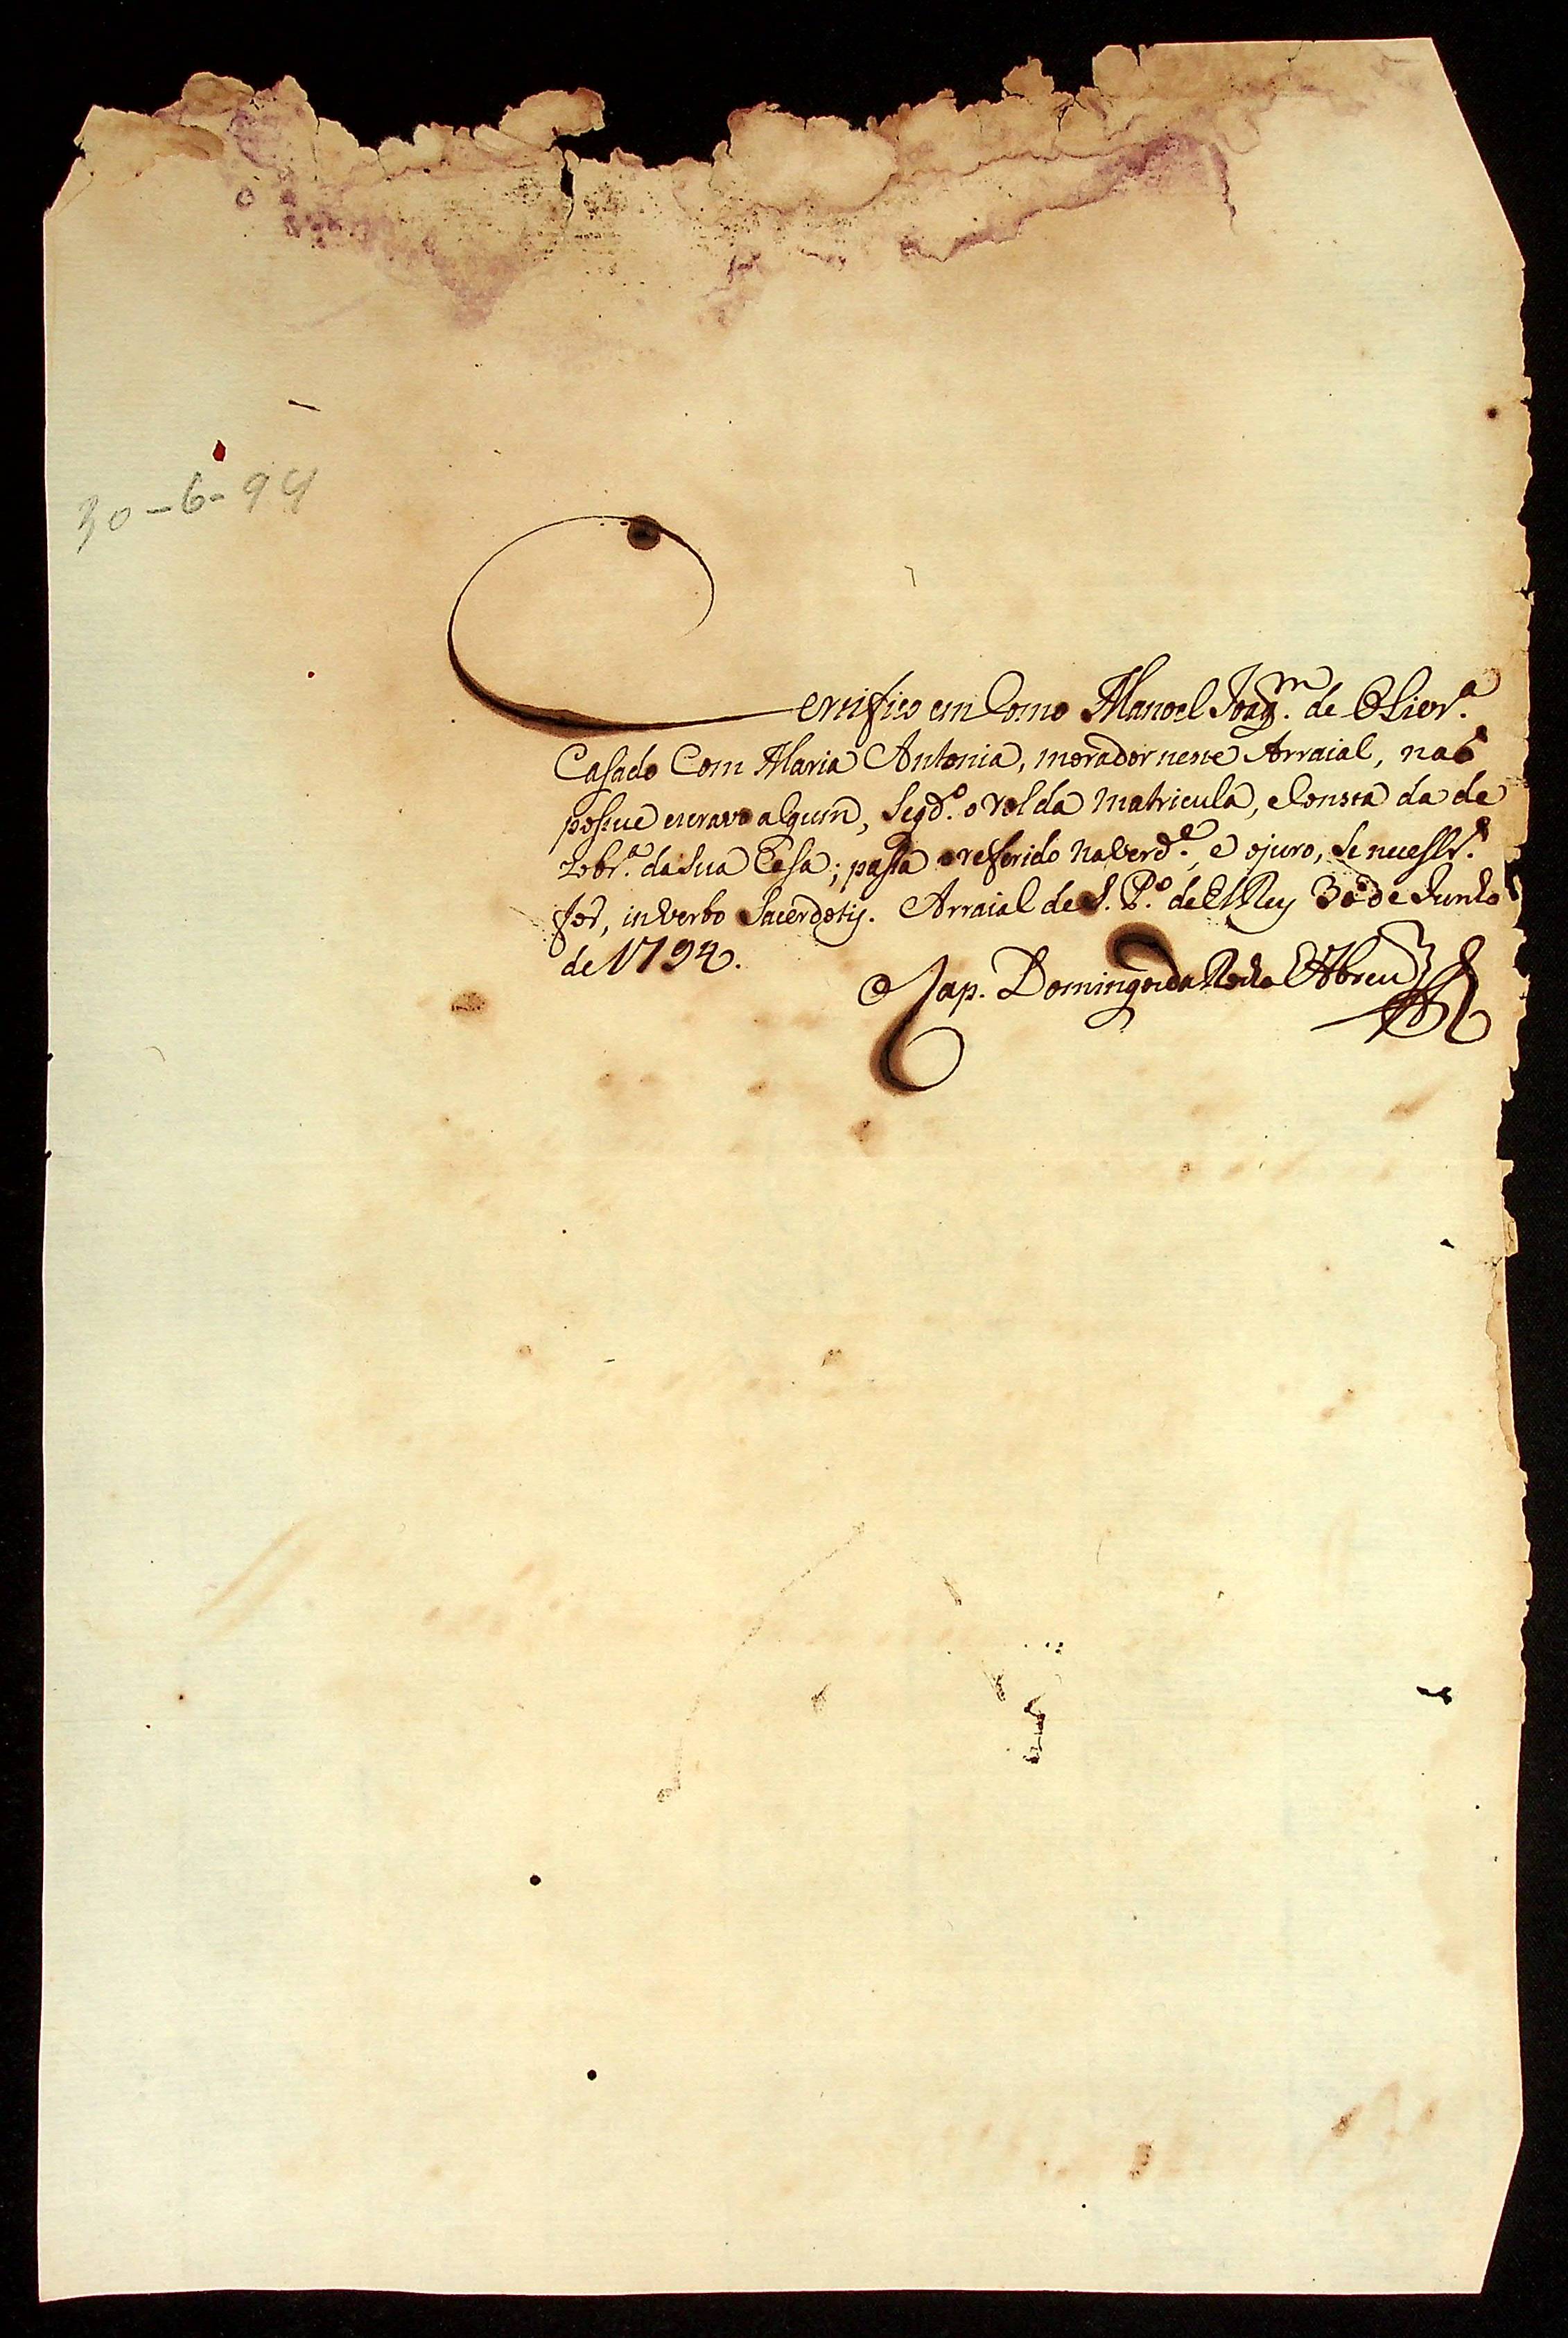 30-6-94
Certifico em Como Manoel Joaqm. de Olivra.
Casado Com Maria Antonia, morador neste Arraial, naõ
possue escravo algum, Segdo. o rol da Matricula, e Consta da de
zobra. da Sua Casa; passa o referido na verde., e o juro, Se necessro.
for, in Verbo Sacerdotis. Arraial de S. Po. de ElRey 30 de Junho
de 1794.
Cap. Domingos da Rocha e Abreu